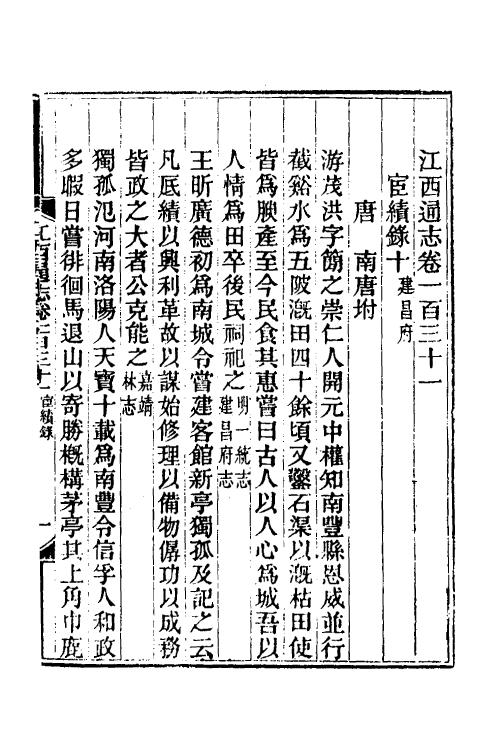 江西通志卷一百三十一
宦績錄十 建昌府
唐 南唐坿
游茂洪字節之崇仁人開元中權知南豐縣恩威並行
截谿水爲五陂溉田四十餘頃又鑿石渠以溉枯田使
皆爲腴產至今民食其惠嘗曰古人以人心爲城吾以
人情爲田卒後民祠祀之 明一統志 建昌府志
王昕廣德初爲南城令嘗建客館新亭獨孤及記之云
凡厎績以興利革故以謀始修理以備物僝功以成務
皆政之大者公克能之 嘉靖林志
獨孤氾河南洛陽人天寶十載爲南豐令信孚人和政
多暇日嘗徘徊馬退山以寄勝槪構茅亭其上角巾鹿
江西通志卷一百三十一 宦績錄 一